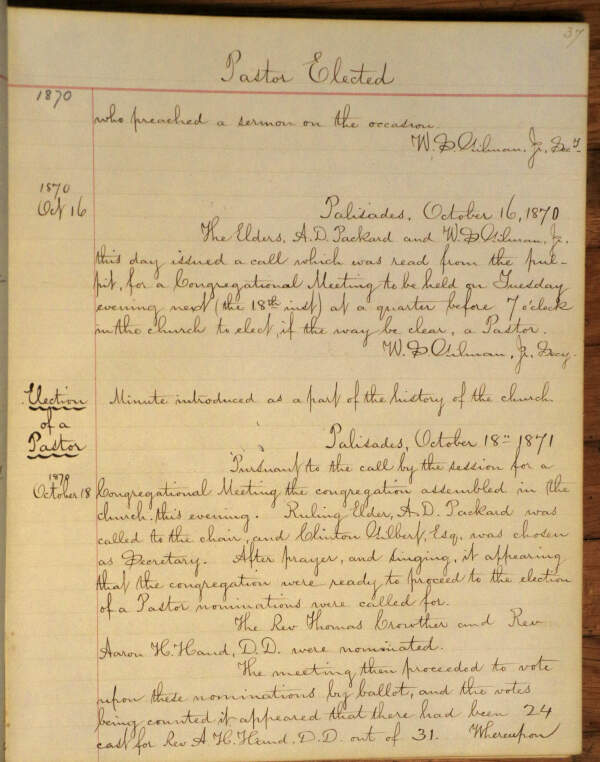 37
Pastor Elected
1870
who preached a sermon on the occasion.
W. S. Gilman, Jr, Secy.
1870
Oct 16
Palisades, October 16, 1870
The Elders, A. D. Packard and W. S. Gilman, Jr.
this day issued a call which was read from the pul-
pit, for a Congregational Meeting to be held on Tuesday
evening next (the 18th inst) at a quarter before 7 o'clock
in the church to elect, if the way be clear, a Pastor.
W. S. Gilman, Jr, Secy.
Election
of a
Pastor
Minute introduced as a part of the history of the church.
Palisades, October 18th 1871
1870
October 18
Pursuant to the call by the session for a
Congregational Meeting the congregation assembled in the
church this evening. Ruling Elder, A. D. Packard was
called to the chair, and Clinton Gilbert, Esq, was chosen
as Secretary. After prayer, and singing, it appearing
that the congregation were ready to proceed to the election
of a Pastor nominations were called for.
The Rev Thomas Crowther and Rev
Aaron H. Hand, D.D. were nominated.
The meeting then proceeded to vote
upon these nominations by ballot, and the votes
being counted it appeared that there had been 24
cast for Rev A. H. Hand, D.D. out of 31. Whereupon